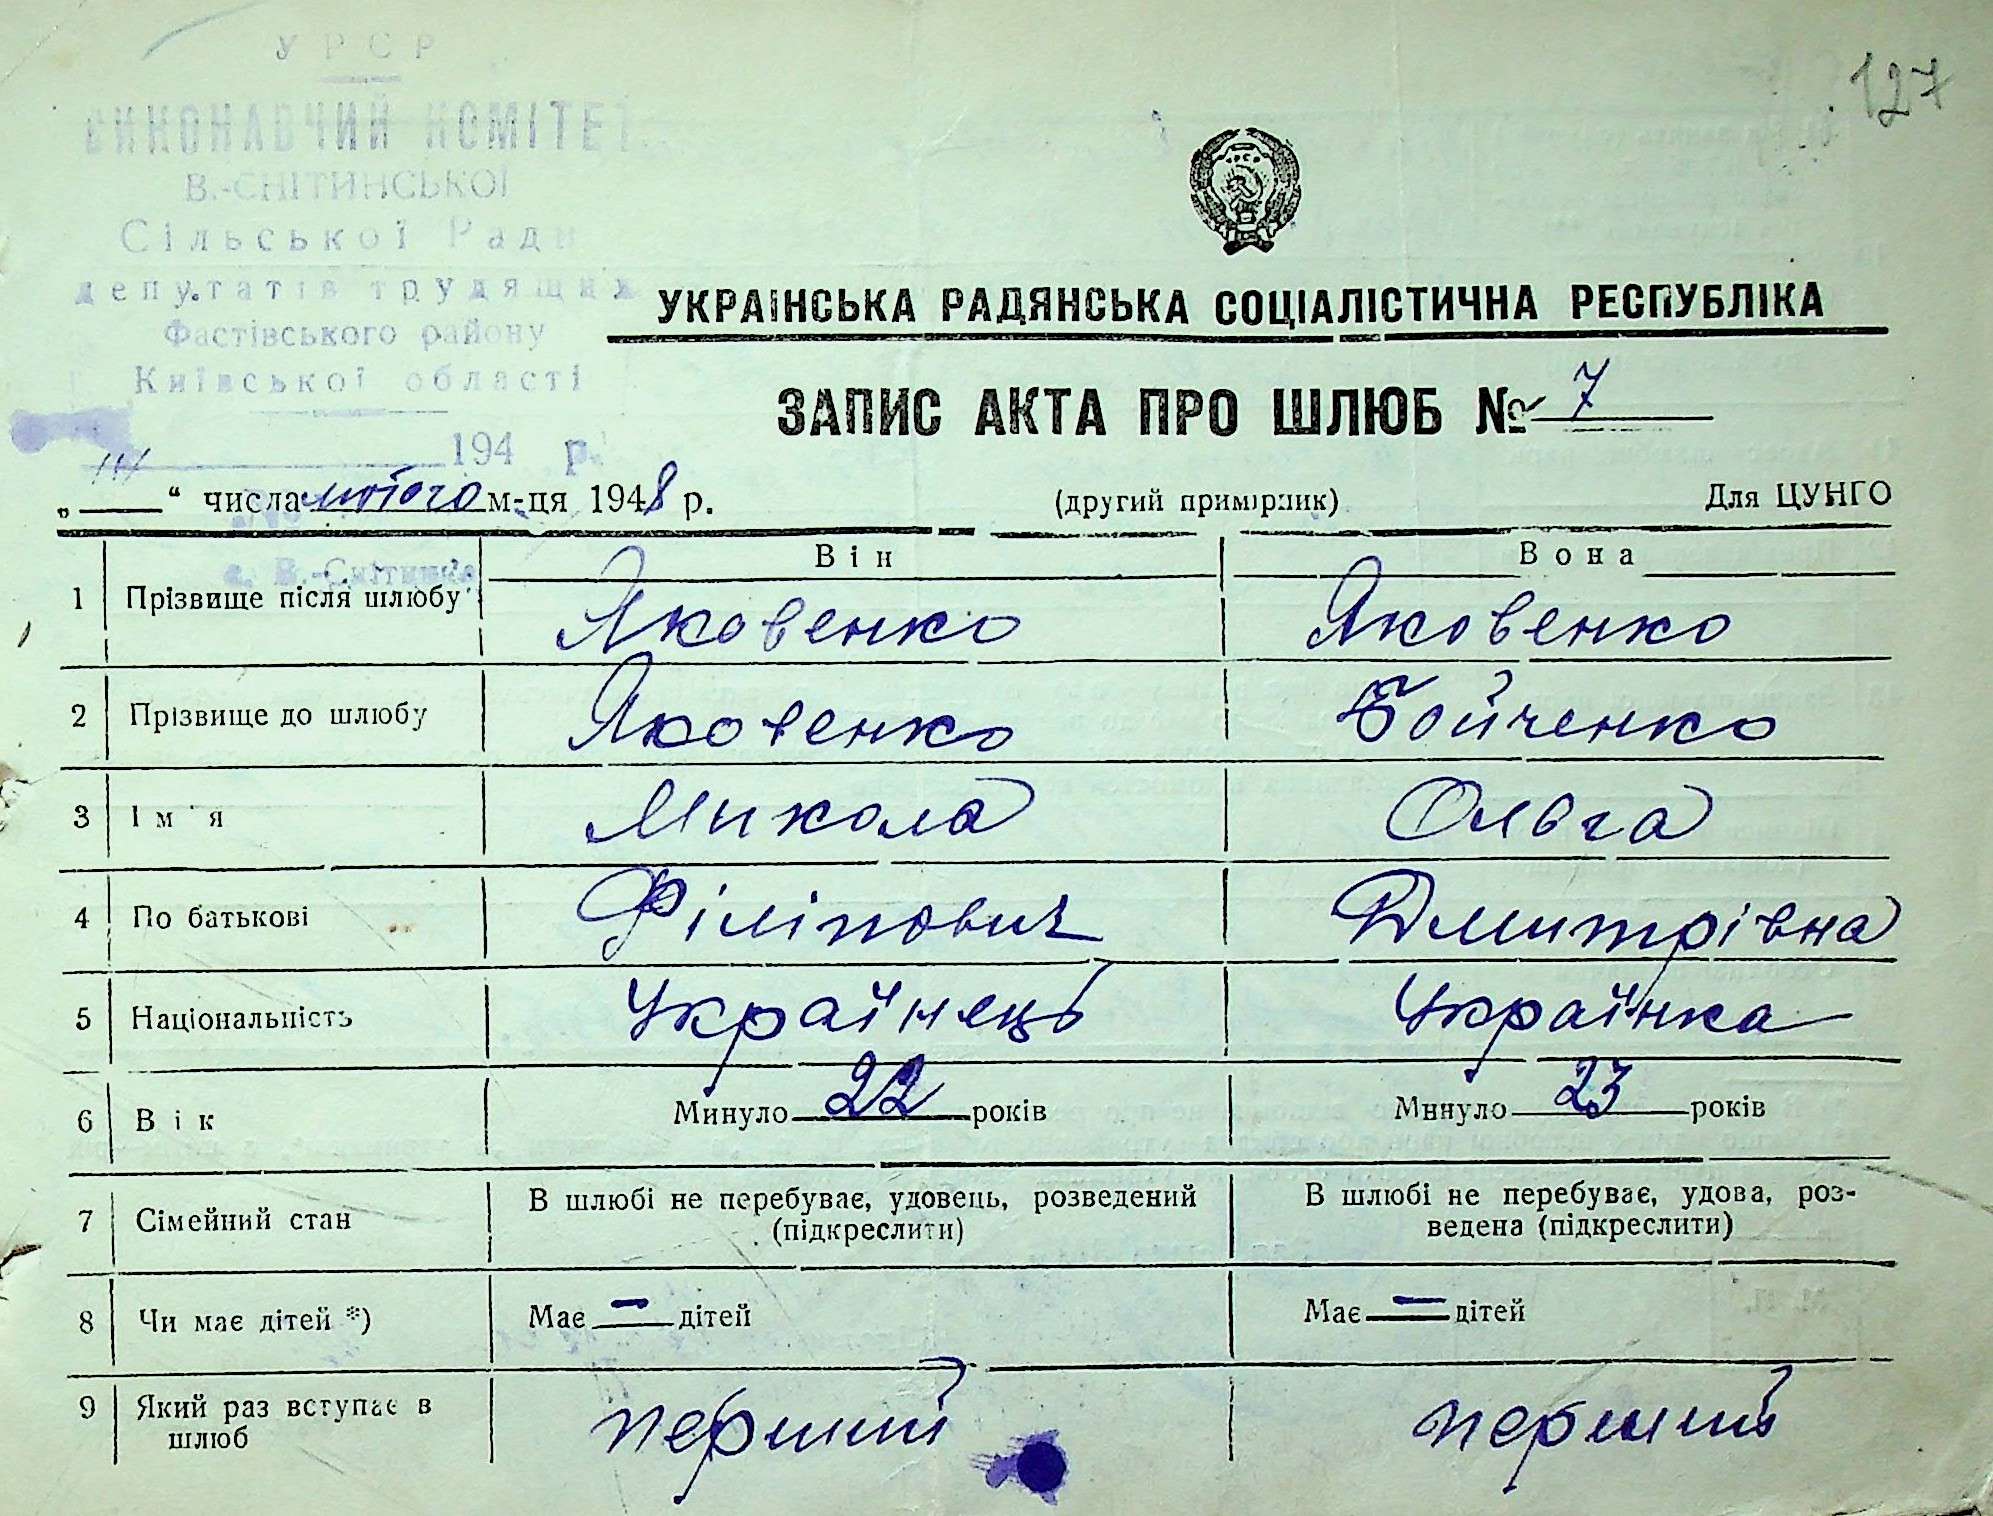 127
УРСР
ВИКОНАВЧИЙ КОМІТЕТ
В.-СНІТИНСЬКОЇ
Сільської Ради
депутатів трудящих
Фастівського району
Київської області
194 р.
с. В.-Снітинка
УРСР
УКРАЇНСЬКА РАДЯНСЬКА СОЦІАЛІСТИЧНА РЕСПУБЛІКА
ЗАПИС АКТА ПРО ШЛЮБ № 7
„ “ числа лютого м-ця 1948 р. (другий примірник) Для ЦУНГО
Він Вона
1 Прізвище після шлюбу Яковенко Яковенко
2 Прізвище до шлюбу Яковенко Бойченко
3 Ім'я Микола Ольга
4 По батькові Філіпович Дмитрівна
5 Національність Українець Українка
6 Вік Минуло 22 років Минуло 23 років
7 Сімейний стан В шлюбі не перебуває, удовець, розведений В шлюбі не перебуває, удова, роз-
(підкреслити) ведена (підкреслити)
8 Чи має дітей *) Має — дітей Має — дітей
9 Який раз вступає в перший перший
шлюб